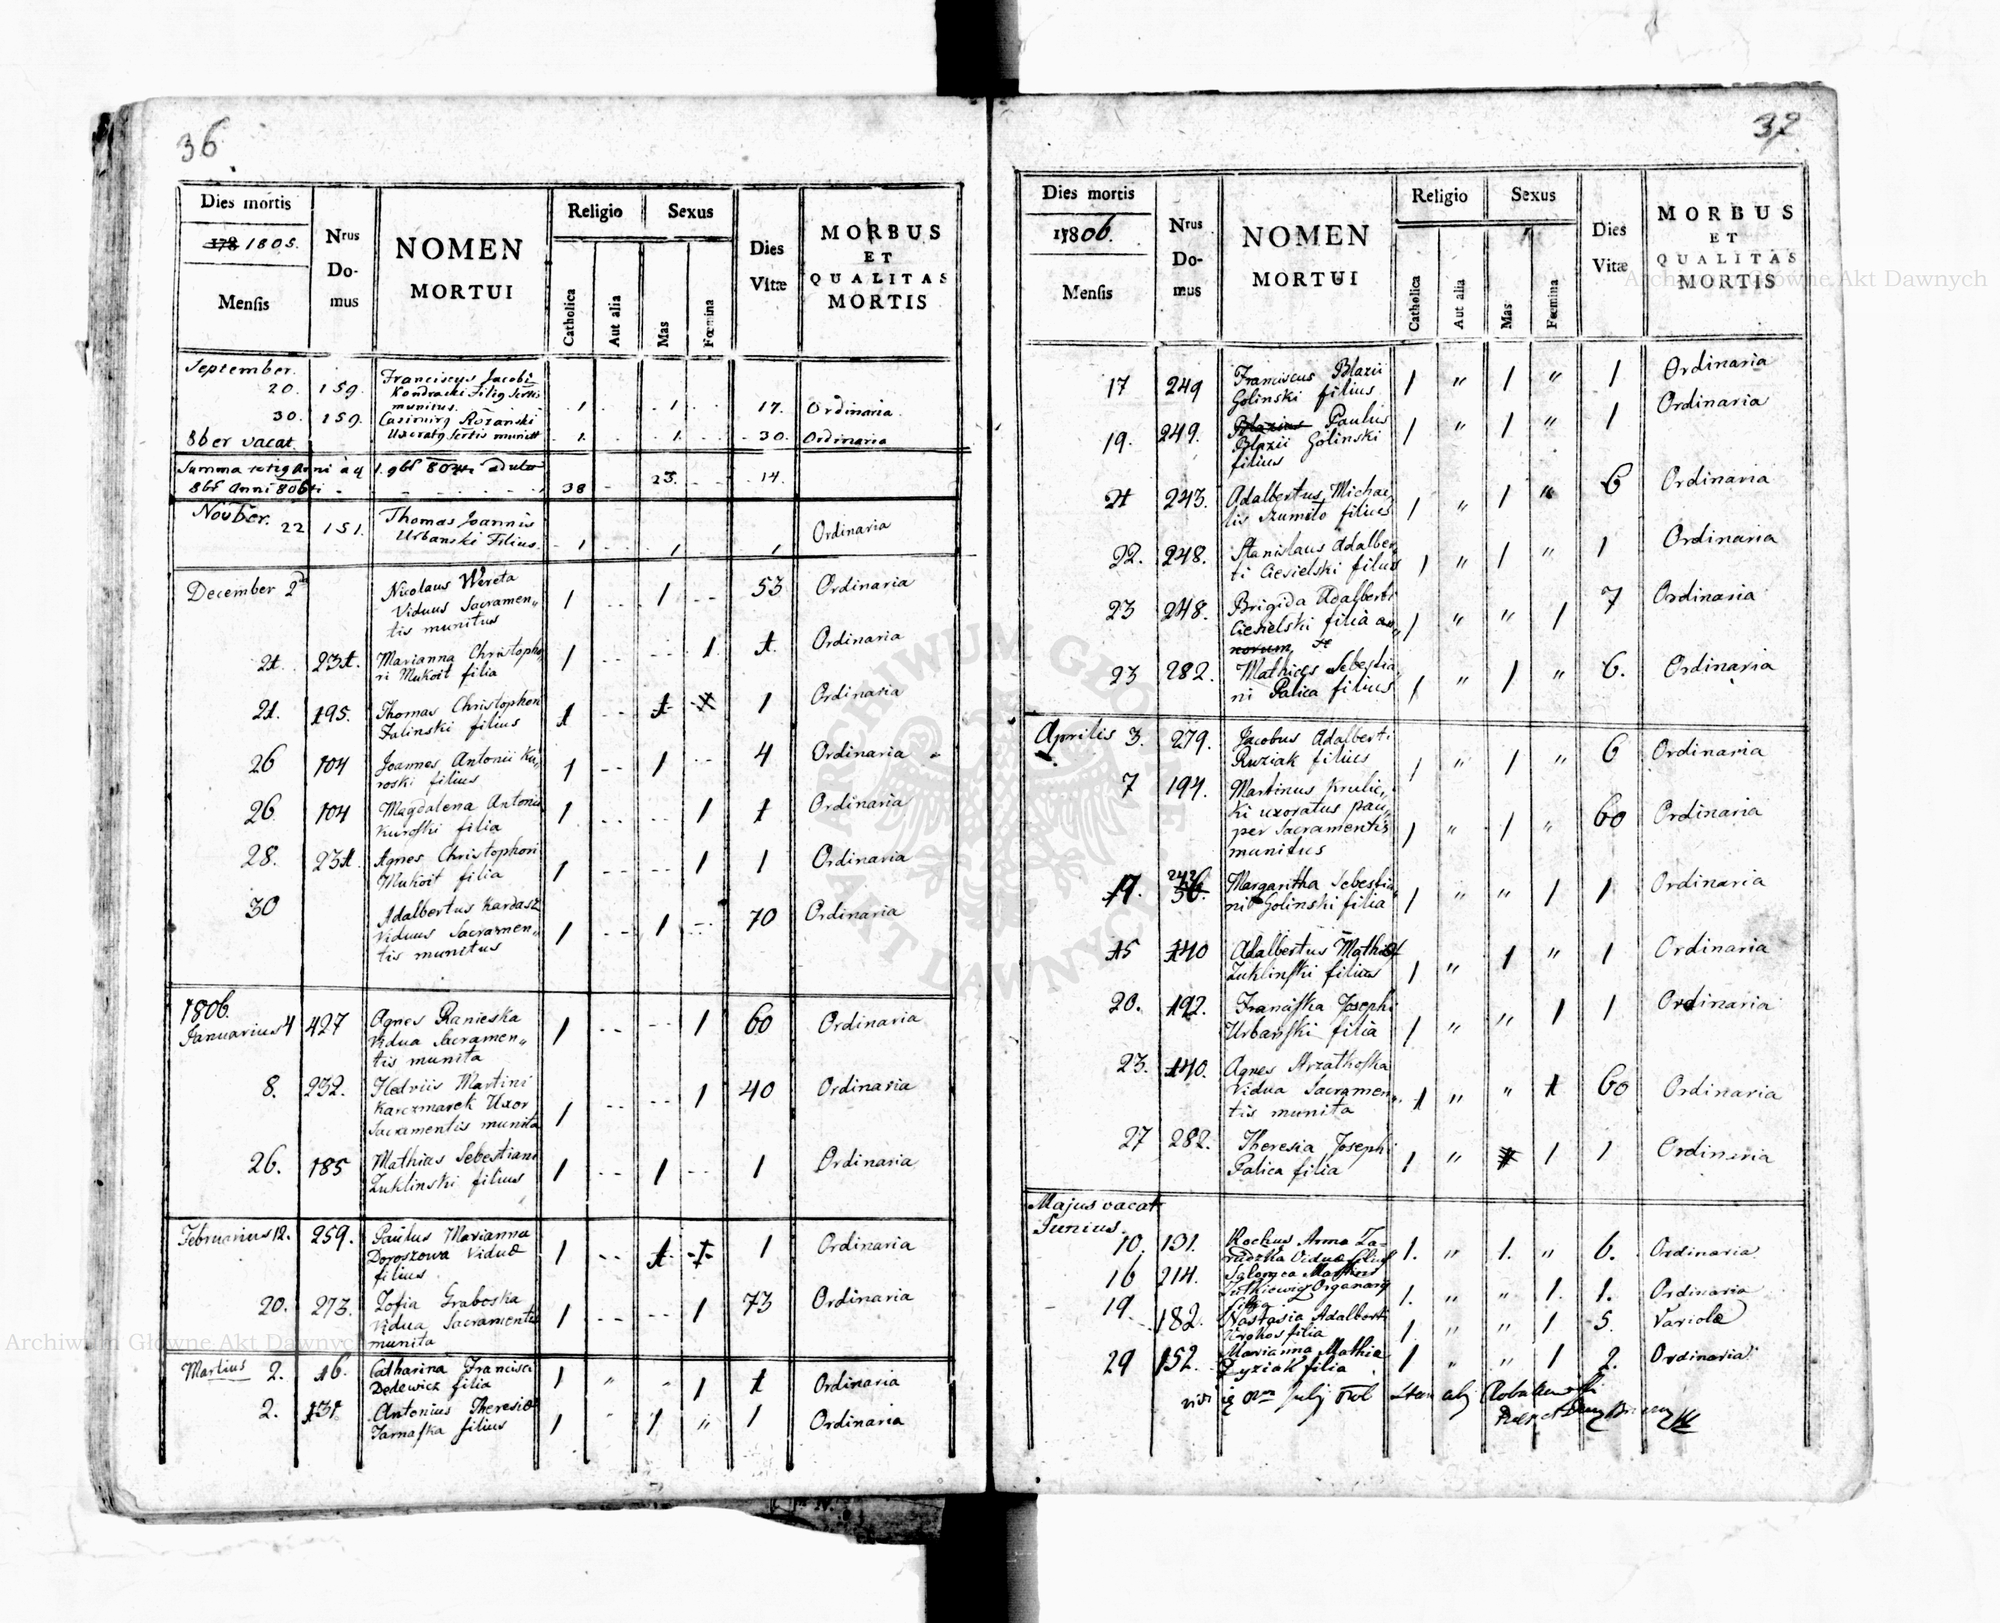 36
Dies mortis
178 1805.
Mensis
Nrus Do-mus
NOMEN
MORTUI
Religio
Catholica
Aut alia
Sexus
Mas
Fœmina
Dies Vitæ
MORBUS
ET
QUALITAS
MORTIS
September.
20. 159. Franciscus Jacobi
Kondracki Filig Sertis
munitus. 1 1 17. Ordinaria.
30. 159. Casimirg Rożanski
Uxoratg Sertis munitt 1. 1. 30. Ordinaria
8ber vacat
Summa totig Anni à 4
8bf Anni 38 23. 14.
Novber. 22 151. Thomas Joannis
Urbanski Filius. 1 1 1 Ordinaria
December 2 Nicolaus Wereta 53 Ordinaria
Viduus Sacramen„ 1 1
tis munitus
21. 231. Marianna Christopho„ 1 1 1 Ordinaria
ri Mukoit filia
21. 195. Thomas Christophori 1 1 1 Ordinaria
Zalinski filius
26 104 Joannes Antonii Ku„ 1 1 4 Ordinaria
roski filius
26 104 Magdalena Antonii 1 1 1 Ordinaria
Kuroski filia
28. 231. Agnes Christophori 1 1 1 Ordinaria
Mukoit filia
30 Adalbertus Kardasz 70 Ordinaria
Viduus Sacramen„ 1 1
tis munitus
1806.
Januarius 4 427 Agnes Ranieska 1 1 60 Ordinaria
Vidua Sacramen„
tis munita
8. 232. Hedviis Martini 1 40 Ordinaria
Karczmarek Uxor 1
Sacramentis munita
26. 185 Mathias Sebestiani 1 1 1 Ordinaria
Zuklinski filius
Februarius 12. 259. Paulus Marianna 1 1 1 Ordinaria
Doroszowa Viduæ
filius
20. 273. Zofia Graboska 1 1 73 Ordinaria
Vidua Sacramentis
munita
Martius 2. 16. Catharina Francisci 1 " 1 1 Ordinaria
Dedewicz filia
2. 131. Antonius Theresiæ 1 " 1 " 1 Ordinaria
Tarnaska filius
37
Dies mortis
1806.
Mensis
Nrus Do-mus
NOMEN
MORTUI
Religio
Catholica
Aut alia
Sexus
Mas
Fœmina
Dies Vitæ
MORBUS
ET
QUALITAS
MORTIS
17 249 Franciscus Blazii 1 " 1 " 1 Ordinaria
Golinski filius
19. 249. Blazius Paulus 1 " 1 " 1 Ordinaria
Blazii Golinski
filius
21 243. Adalbertus Michae„ 1 " 1 " 6 Ordinaria
lis Szumito filius
22. 248. Stanislaus Adalber„ 1 " 1 " 1 Ordinaria
ti Ciesielski filius
23 248. Brigida Adalberti 1 " " 1 7 Ordinaria
Ciesielski filia an„
norum
23 282. Mathias Sebestia„ 1 " 1 " 6. Ordinaria
ni Palica filius
Aprilis 3. 279. Jacobus Adalberti 1 " 1 " 6 Ordinaria
Ruziak filius
7 194. Martinus Krulic„
ki uxoratus pau„ 60 Ordinaria
per Sacramentis 1 " 1 "
munitus
242
19. 36. Margaritha Sebestia„ 1 " " 1 1 Ordinaria
ni Golinski filia
15 140 Adalbertus Mathiæ 1 " 1 " 1 Ordinaria
Zuklinski filius
20. 192. Franciska Josephi 1 " " 1 1 Ordinaria
Urbanski filia
23. 140. Agnes Strzatkoska
Vidua Sacramen„ 1 " " 1 60 Ordinaria
tis munita
27 282. Theresia Josephi 1 " 1 1 Ordinaria
Palica filia
Majus vacat
Junius.
10. 131. Rochus Anna Za-
rudzka Viduæ filius 1. " 1. " 6. Ordinaria
16 214. Salomea Martini
Organarii 1. " " 1. 1. Ordinaria
filia
19 182. Nastasia Adalberti
filia 1. " " 1 5. Variolæ
29 152. Marianna Mathiæ
Zyziak filia 1 " " 1 2. Ordinaria.
Archiwum Główne Akt Dawnych
Archiwum Główne Akt Dawnych
ARCHIWUM GŁÓWNE AKT DAWNYCH